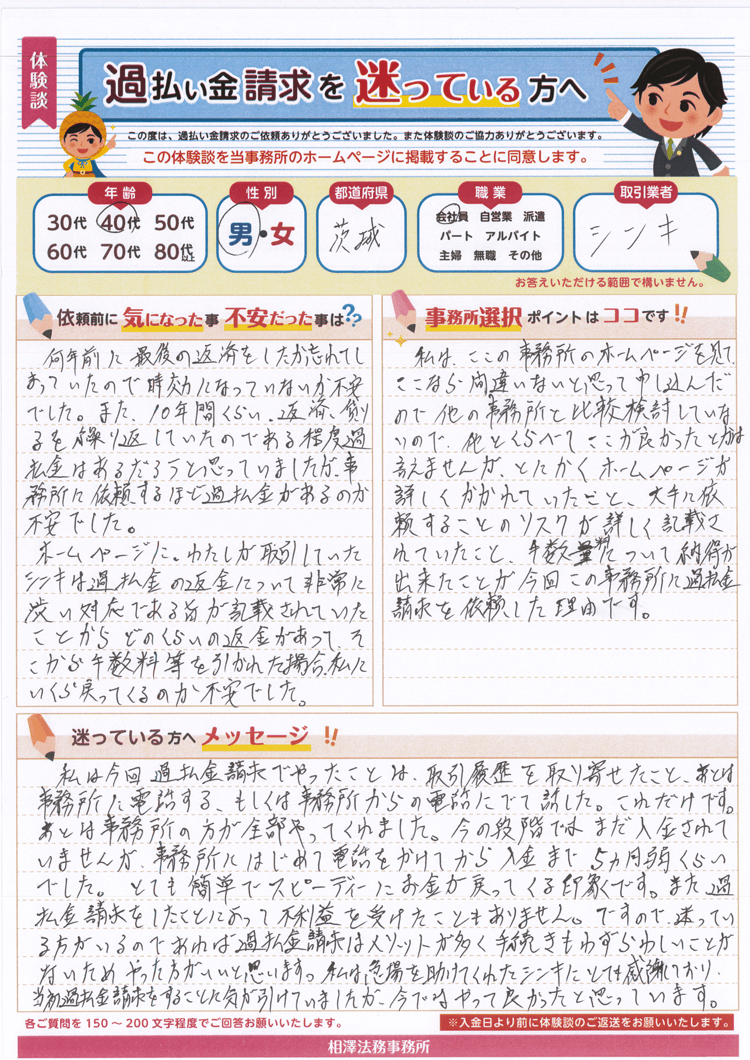 体験談
過払い金請求を迷っている方へ
この度は、過払い金請求のご依頼ありがとうございました。また体験談のご協力ありがとうございます。
この体験談を当事務所のホームページに掲載することに同意します。
年齢
30代 40代 50代
60代 70代 80代以上
性別
男・女
都道府県
茨城
職業
会社員 自営業 派遣
パート アルバイト
主婦 無職 その他
取引業者
シンキ
お答えいただける範囲で構いません。
依頼前に気になった事 不安だった事は??
何年前に最後の返済をしたか忘れてし
まっていたので時効になっていないか不安
でした。また、10年間くらい、返済、借り
るを繰り返していたのである程度過
払金はあるだろうと思っていましたが、事
務所に依頼するほど過払金があるのか
不安でした。
ホームページに、わたしが取引していた
シンキは過払金の返金について非常に
渋い対応である旨が記載されていた
ことからどのくらいの返金があって、そ
こから手数料等を引かれた場合、私に
いくら戻ってくるのか不安でした。
事務所選択ポイントはココです!!
私は、ここの事務所のホームページを見て、
ここなら間違いないと思って申し込んだ
ので他の事務所と比較検討していな
いので、他とくらべてここが良かったとかは
言えませんが、とにかくホームページが
詳しくかかれていたこと、大手に依
頼することのリスクが詳しく記載さ
れていたこと、手数料について納得が
出来たことが今回この事務所に過払金
請求を依頼した理由です。
迷っている方へメッセージ!!
私は今回過払金請求でやったことは、取引履歴を取り寄せたこと、あとは
事務所に電話する、もしくは事務所からの電話にでて話した。これだけです。
あとは事務所の方が全部やってくれました。今の段階ではまだ入金されて
いませんが、事務所にはじめて電話をかけてから入金まで5カ月弱くらい
でした。とても簡単でスピーディーにお金が戻ってくる印象です。また過
払金請求をしたことによって不利益を受けたこともありません。ですので、迷ってい
る方がいるのであれば過払金請求はメリットが多く手続きもわずらわしいことが
ないためやった方がいいと思います。私は急場を助けてくれたシンキにとても感謝しており、
当初過払金請求をすることに気が引けていましたが、今ではやって良かったと思っています。
各ご質問を150〜200文字程度でご回答お願いいたします。
※入金日より前に体験談のご返送をお願いいたします。
相澤法務事務所